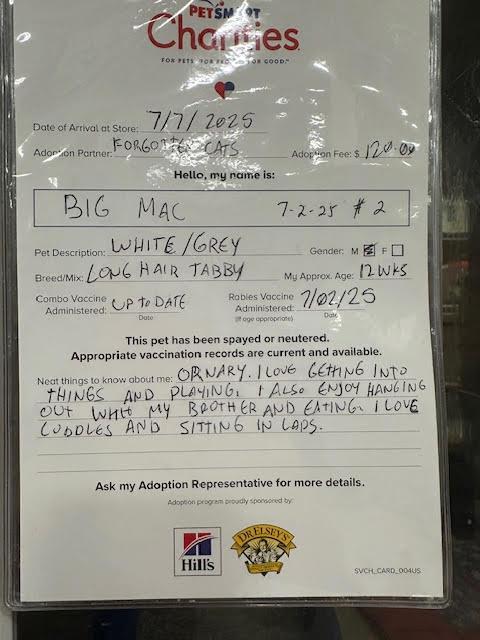 PETSMART
Charities
FOR PETS. FOR PEOPLE. FOR GOOD.™
Date of Arrival at Store: 7/7/2025
Adoption Partner: FORGOTTEN CATS Adoption Fee: $ 120.00
Hello, my name is:
BIG MAC 7-2-25 #2
Pet Description: WHITE/GREY Gender: M F
Breed/Mix: LONG HAIR TABBY My Approx. Age: 12 WKS
Combo Vaccine Administered: UP to DATE Rabies Vaccine Administered: 7/02/25
Date (If age appropriate) Date
This pet has been spayed or neutered.
Appropriate vaccination records are current and available.
Neat things to know about me: ORNARY. I LOVE GETTING INTO
THINGS AND PLAYING. I ALSO ENJOY HANGING
OUT WITH MY BROTHER AND EATING. I LOVE
CUDDLES AND SITTING IN LAPS.
Ask my Adoption Representative for more details.
Adoption program proudly sponsored by:
Hill's
DR ELSEY'S
SVCH_CARD_004US